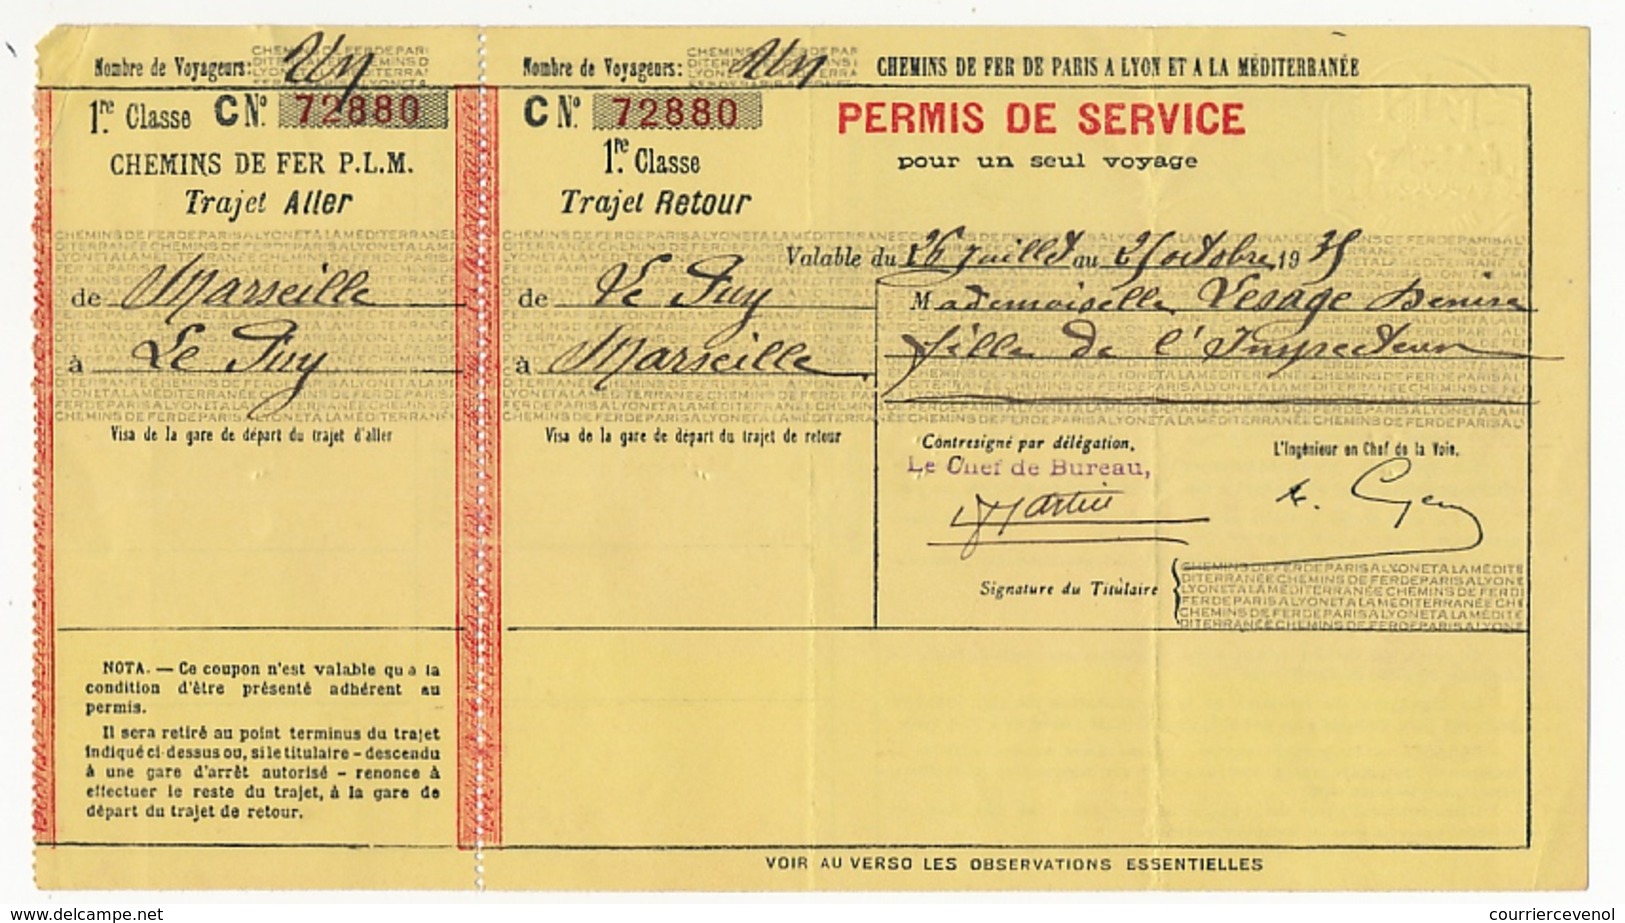 Nombre de Voyageurs: Un
1re Classe C No. 72880
CHEMINS DE FER P.L.M.
Trajet Aller
de Marseille
à Le Puy
Visa de la gare de départ du trajet d'aller
NOTA. — Ce coupon n'est valable qu'à la
condition d'être présenté adhérent au
permis.
Il sera retiré au point terminus du trajet
indiqué ci-dessus ou, si le titulaire - descendu
à une gare d'arrêt autorisé - renonce à
effectuer le reste du trajet, à la gare de
départ du trajet de retour.
Nombre de Voyageurs: Un
C No. 72880
1re Classe
Trajet Retour
de Le Puy
à Marseille
Visa de la gare de départ du trajet de retour
CHEMINS DE FER DE PARIS A LYON ET A LA MÉDITERRANÉE
PERMIS DE SERVICE
pour un seul voyage
Valable du 26 Juillet au 25 octobre 1935
Mademoiselle Lesage Denise
fille de l'Inspecteur
Contresigné par délégation,
Le Chef de Bureau,
Martin
L'Ingénieur en Chef de la Voie,
Signature du Titulaire
VOIR AU VERSO LES OBSERVATIONS ESSENTIELLES
© www.delcampe.net
courriercevenol